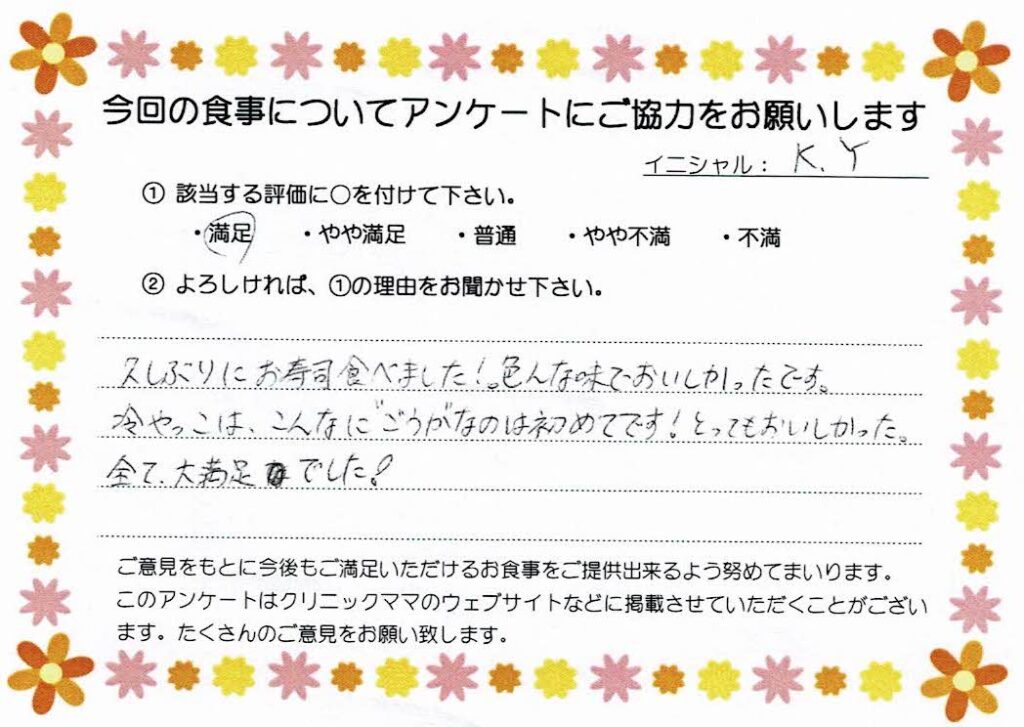 今回の食事についてアンケートにご協力をお願いします
イニシャル： K.Y
① 該当する評価に○を付けて下さい。
・満足 ・やや満足 ・普通 ・やや不満 ・不満
② よろしければ、①の理由をお聞かせ下さい。
久しぶりにお寿司食べました!。色んな味でおいしかったです。
冷やっこは、こんなに"ごうがなのは初めてです!とってもおいしかった。
全て、大満足でした!
ご意見をもとに今後もご満足いただけるお食事をご提供出来るよう努めてまいります。
このアンケートはクリニックママのウェブサイトなどに掲載させていただくことがござい
ます。たくさんのご意見をお願い致します。